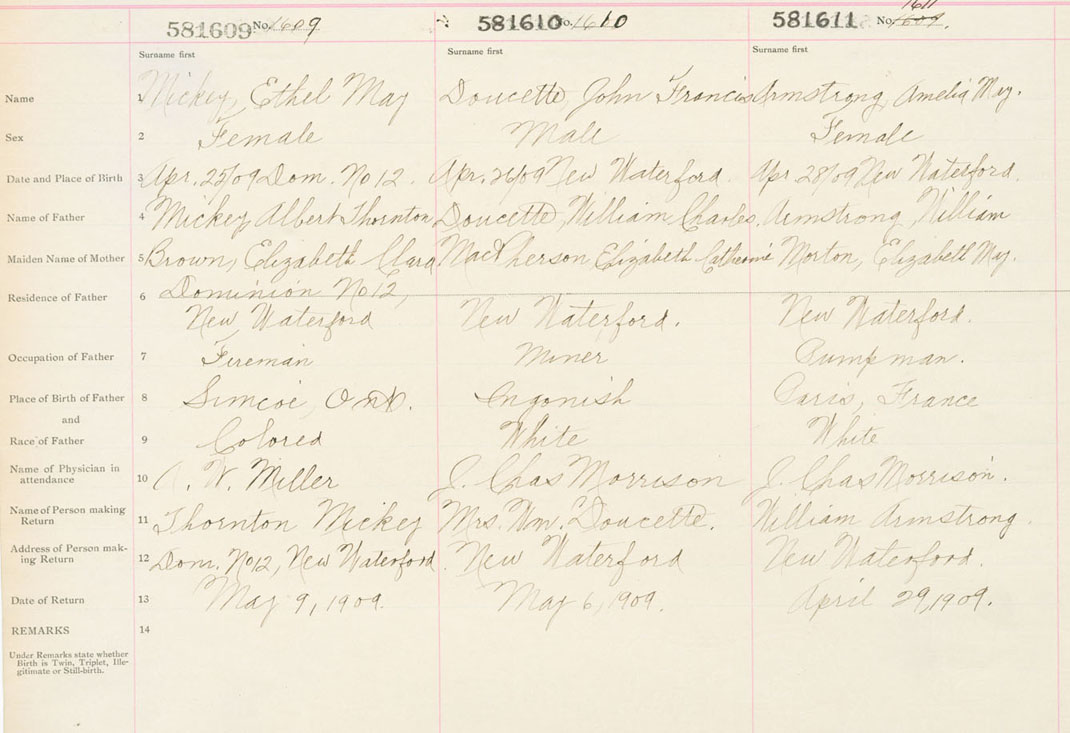 581609 No. 1609 581610 No. 1610 581611 No. 1609. 1611
Surname first Surname first Surname first
Name 1 Mickey, Ethel May Doucette, John Francis Armstrong, Amelia May.
Sex 2 Female Male Female
Date and Place of Birth 3 Apr. 25/09 Dom. No 12. Apr. 26/09 New Waterford. Apr 28/09 New Waterford.
Name of Father 4 Mickey Albert Thornton Doucette, William Charles. Armstrong, William
Maiden Name of Mother 5 Brown, Elizabeth Clara. MacPherson Elizabeth Catherine Morton, Elizabeth May.
Residence of Father 6 Dominion No 12,
New Waterford New Waterford. New Waterford.
Occupation of Father 7 Fireman Miner Pumpman.
Place of Birth of Father 8 Simcoe, Ont. Ingonish Paris, France
and
Race of Father 9 Colored White White
Name of Physician in
attendance 10 W. Miller J. Chas Morrison J. Chas Morrison.
Name of Person making
Return 11 Thornton Mickey Mrs. Wm. Doucette. William Armstrong.
Address of Person mak-
ing Return 12 Dom. No 12, New Waterford. New Waterford New Waterford.
Date of Return 13 May 9, 1909. May 6, 1909. April 29, 1909.
REMARKS 14
Under Remarks state whether
Birth is Twin, Triplet, Ille-
gitimate or Still-birth.